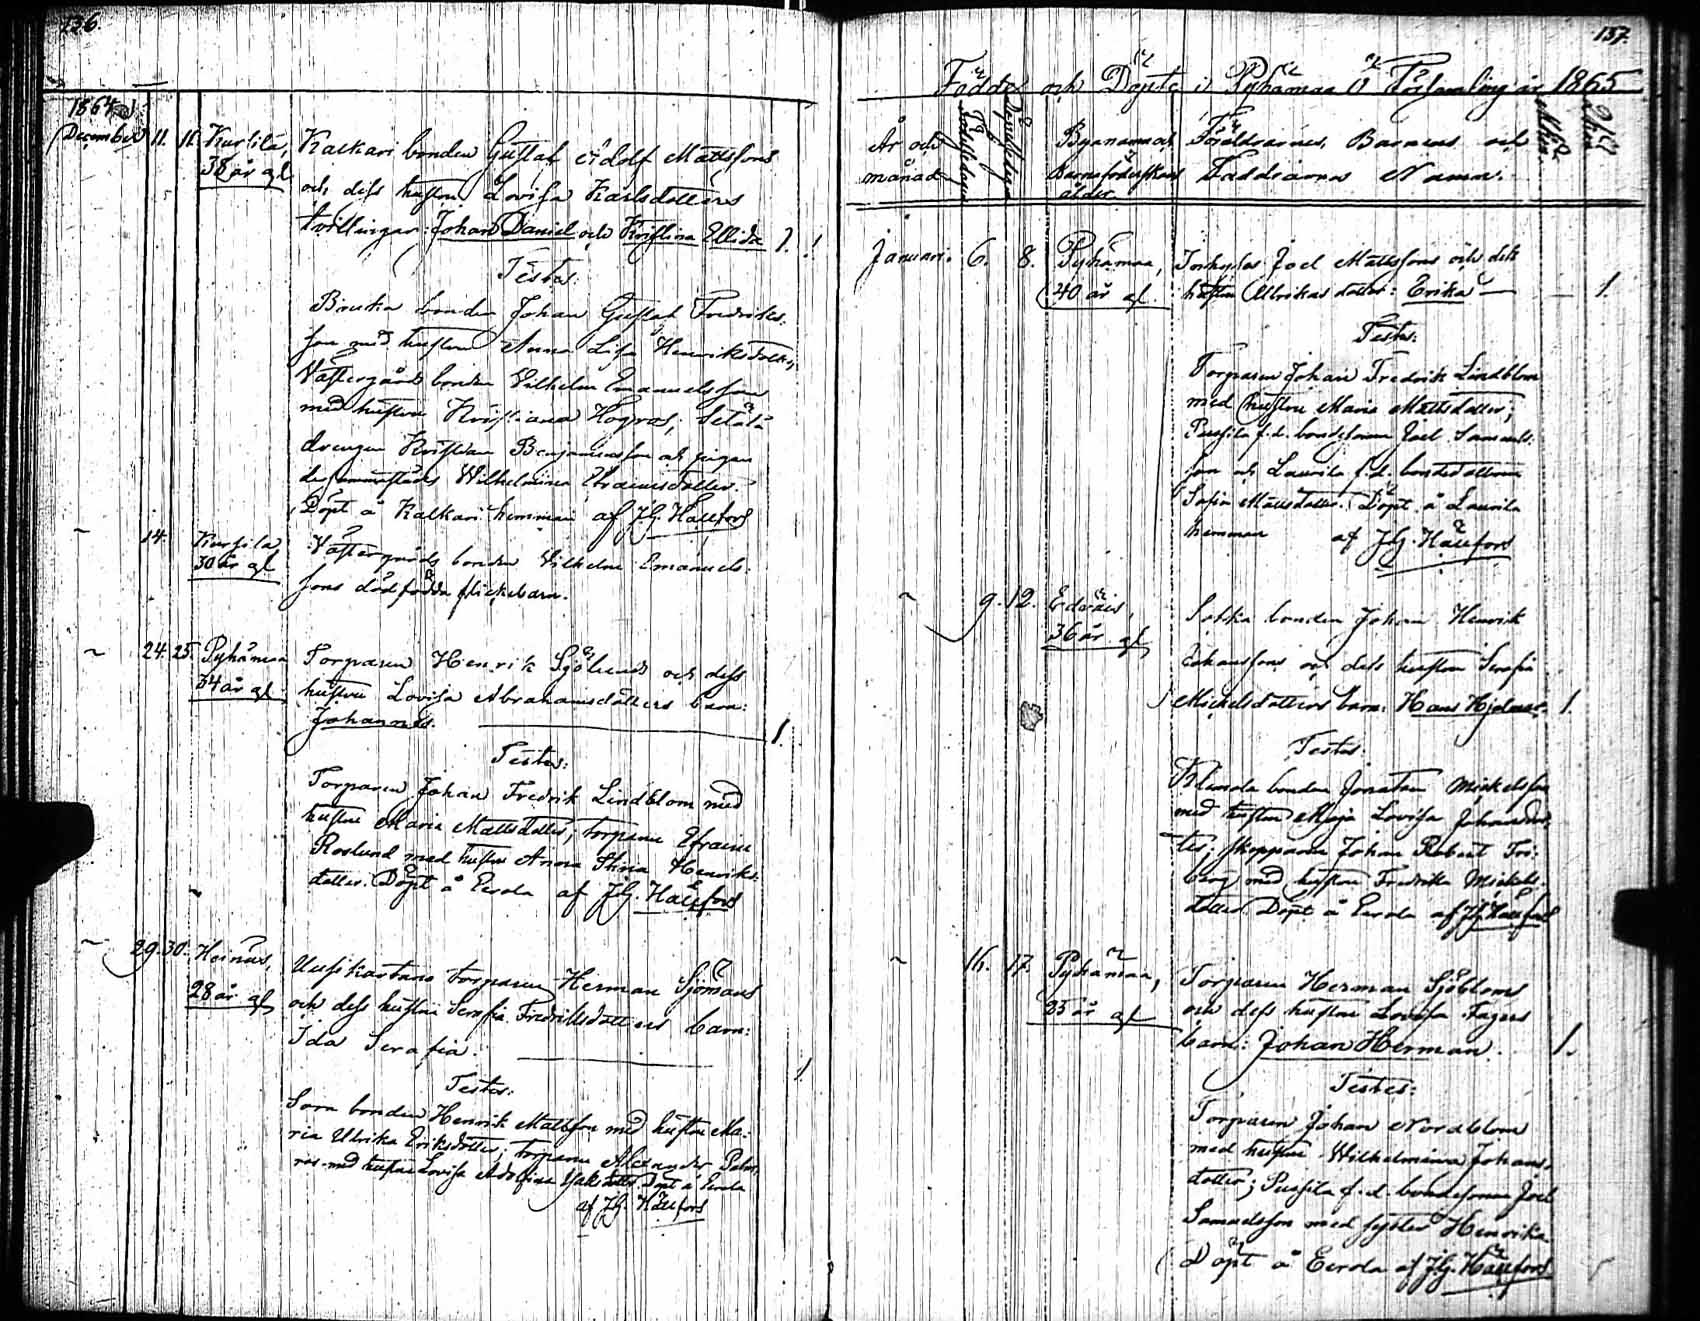 136.
1864
December 11. 16. Kursila, Kalkari bonden Gustaf Adolf Mattssons
38 år gl. och dess hustru Lovisa Karlsdotters
tvillingar: Johan Daniel och Kristina Elida 1. 1
Testes:
bonden Johan Gustaf Fredriks-
son med hustru Anna Lisa Henriksdotter,
Västergårds bonden Vilhelm Emanuelsson
med hustru Kristiana
drengen Kristian Benjaminsson och pigan
Wilhelmina Efraimsdotter.
Döpt å Kalkari hemman af J.G. Hallfors
14. Kursila Västergårds bonden Vilhelm Emanuels-
30 år gl. sons dödfödda flickebarn.
24. 25. Pyhämaa Torparen Henrik Sjölund och dess
34 år gl. hustru Lovisa Abrahamsdotters barn:
Johannes. 1.
Testes:
Torparen Johan Fredrik Lindblom med
hustru Maria Mattsdotter; torparen Efraim
Roslund med hustru Anna Stina Henriks-
dotter. Döpt å Eerola af J.G. Hallfors
29. 30. Heinäis, torparen Herman Sjömans
28 år gl. och dess hustru Serafia Fredriksdotters barn:
Ida Serafia. 1
Testes:
bonden Henrik Mattsson med hustru Ma-
ria Ulrika Eriksdotter; torparen Alexander Palm-
ros med hustru Lovisa Adolfina Döpt å Eerola
af J.G. Hallfors
137.
Födde och Döpte i Pyhämaa Församling år 1865
År och Födelsedagen Döpelsedagen Byanamn och Föräldrarnes, Barnens och
månad Barnsföderskans Faddrarnes Namn.
ålder
Januari. 6. 8. Pyhämaa, Joel Mattssons och dess
40 år gl. hustru Ulrikas dotter: Erika 1.
Testes:
Torparen Johan Fredrik Lindblom
med hustru Maria Mattsdotter;
f.d. bondesonen Joel Samuels-
son och Laurila f.d. bondedottren
Sofia Mattsdotter. Döpt å Laurila
hemman af J.G. Hallfors
9. 12. Edväis, Sokka bonden Johan Henrik
36 år gl. Johanssons och dess hustru Serafia
Mickelsdotters barn: Hans Hjalmar. 1.
Testes:
bonden Jonatan Mickelsson
med hustru Maja Lovisa Johansdot-
ter; skepparen Johan Robert
berg med hustru Fredrika Mickels-
dotter. Döpt å Eerola af J.G. Hallfors
16. 17. Pyhämaa, Torparen Herman Sjöbloms
25 år gl. och dess hustru Lovisa
barn: Johan Herman. 1.
Testes:
Torparen Johan Nordblom
med hustru Wilhelmina Johans-
dotter; f.d. bondesonen Joel
Samuelsson med syster Henrika
Döpt å Eerola af J.G. Hallfors